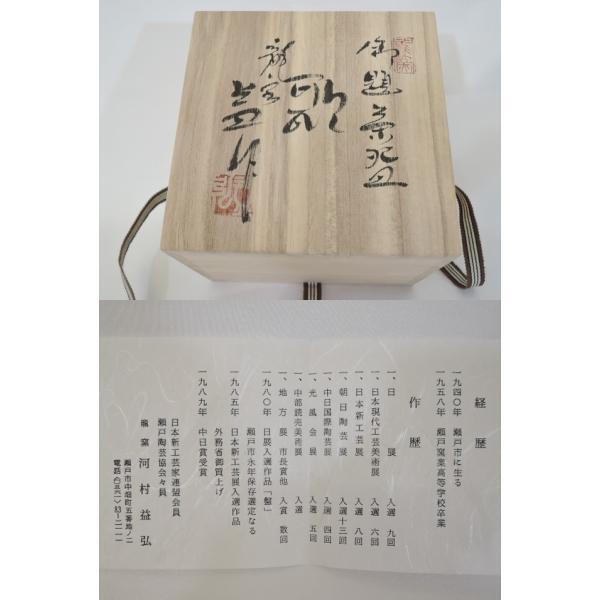 御題茶碗
歌
龍窯
益弘作
経歴
一九四〇年 瀬戸市に生る
一九五八年 瀬戸窯業高等学校卒業
作歴
一、日展 入選 九回
一、日本現代工芸美術展 入選 六回
一、日本新工芸展 入選 八回
一、朝日陶芸展 入選十三回
一、中日国際陶芸展 入選 四回
一、光風会展 入選 五回
一、中部読売美術展 入選
一、地方展 市長賞他 入賞 数回
一九八〇年 日展入選作品「盤」
瀬戸市永年保存選定なる
一九八五年 日本新工芸展入選作品
外務省御買上げ
一九八九年 中日賞受賞
日本新工芸家連盟会員
瀬戸陶芸協会々員
龍窯 河村益弘
瀬戸市中畑町五番地ノ二